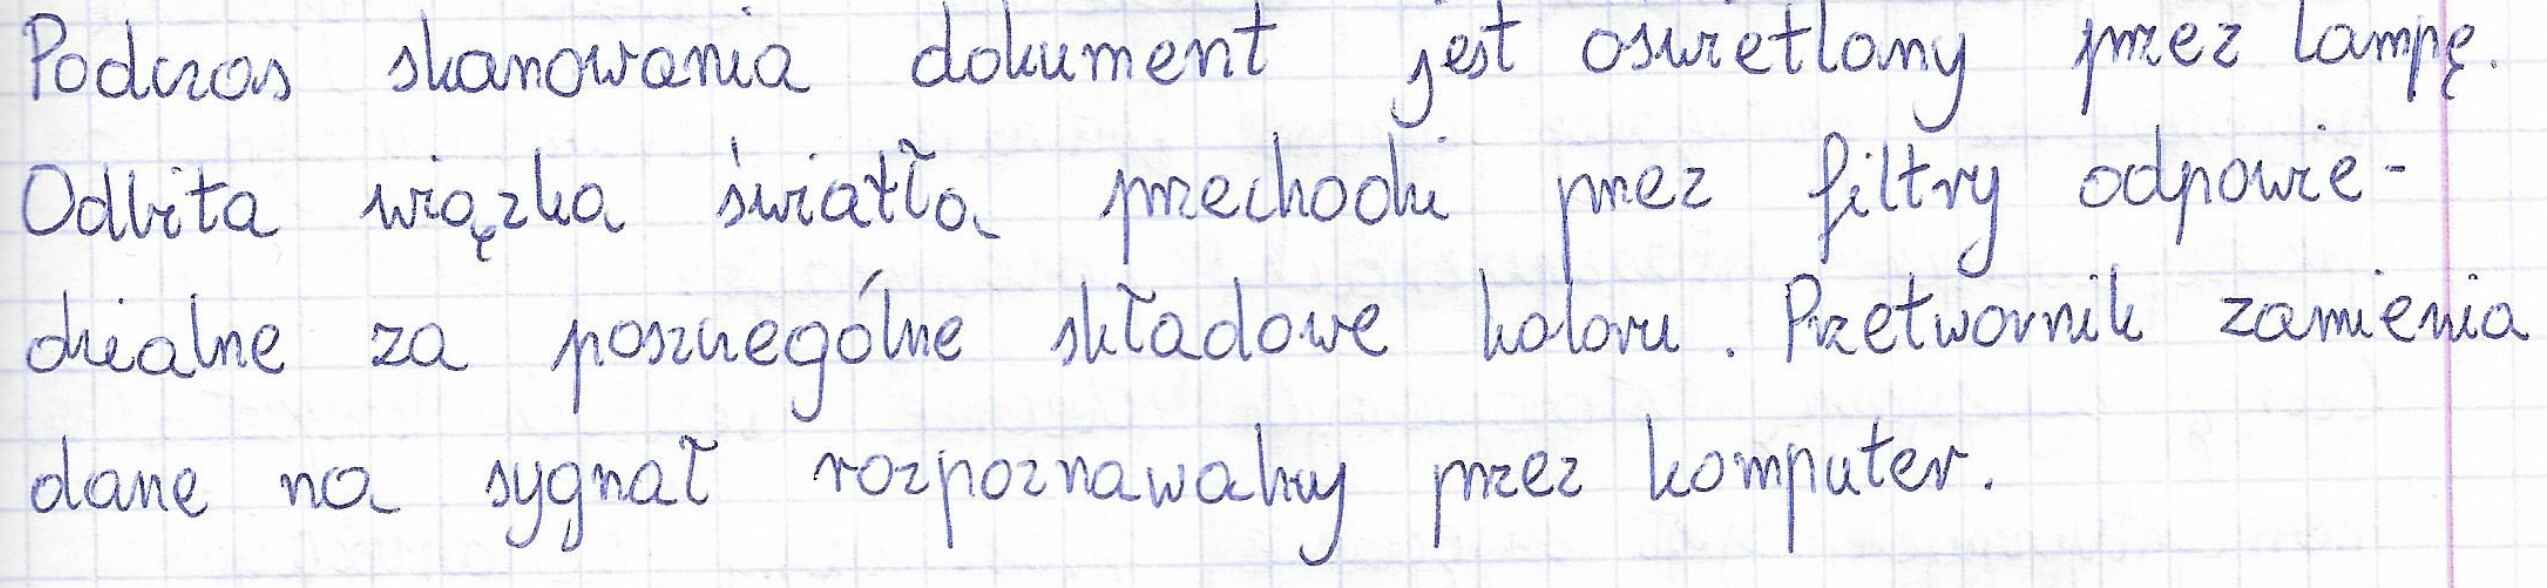 Podczas skanowania dokument jest oświetlany przez lampę.
Odbita wiązka światła przechodzi przez filtry odpowie-
dzialne za poszczególne składowe koloru. Przetwornik zamienia
dane na sygnał rozpoznawalny przez komputer.